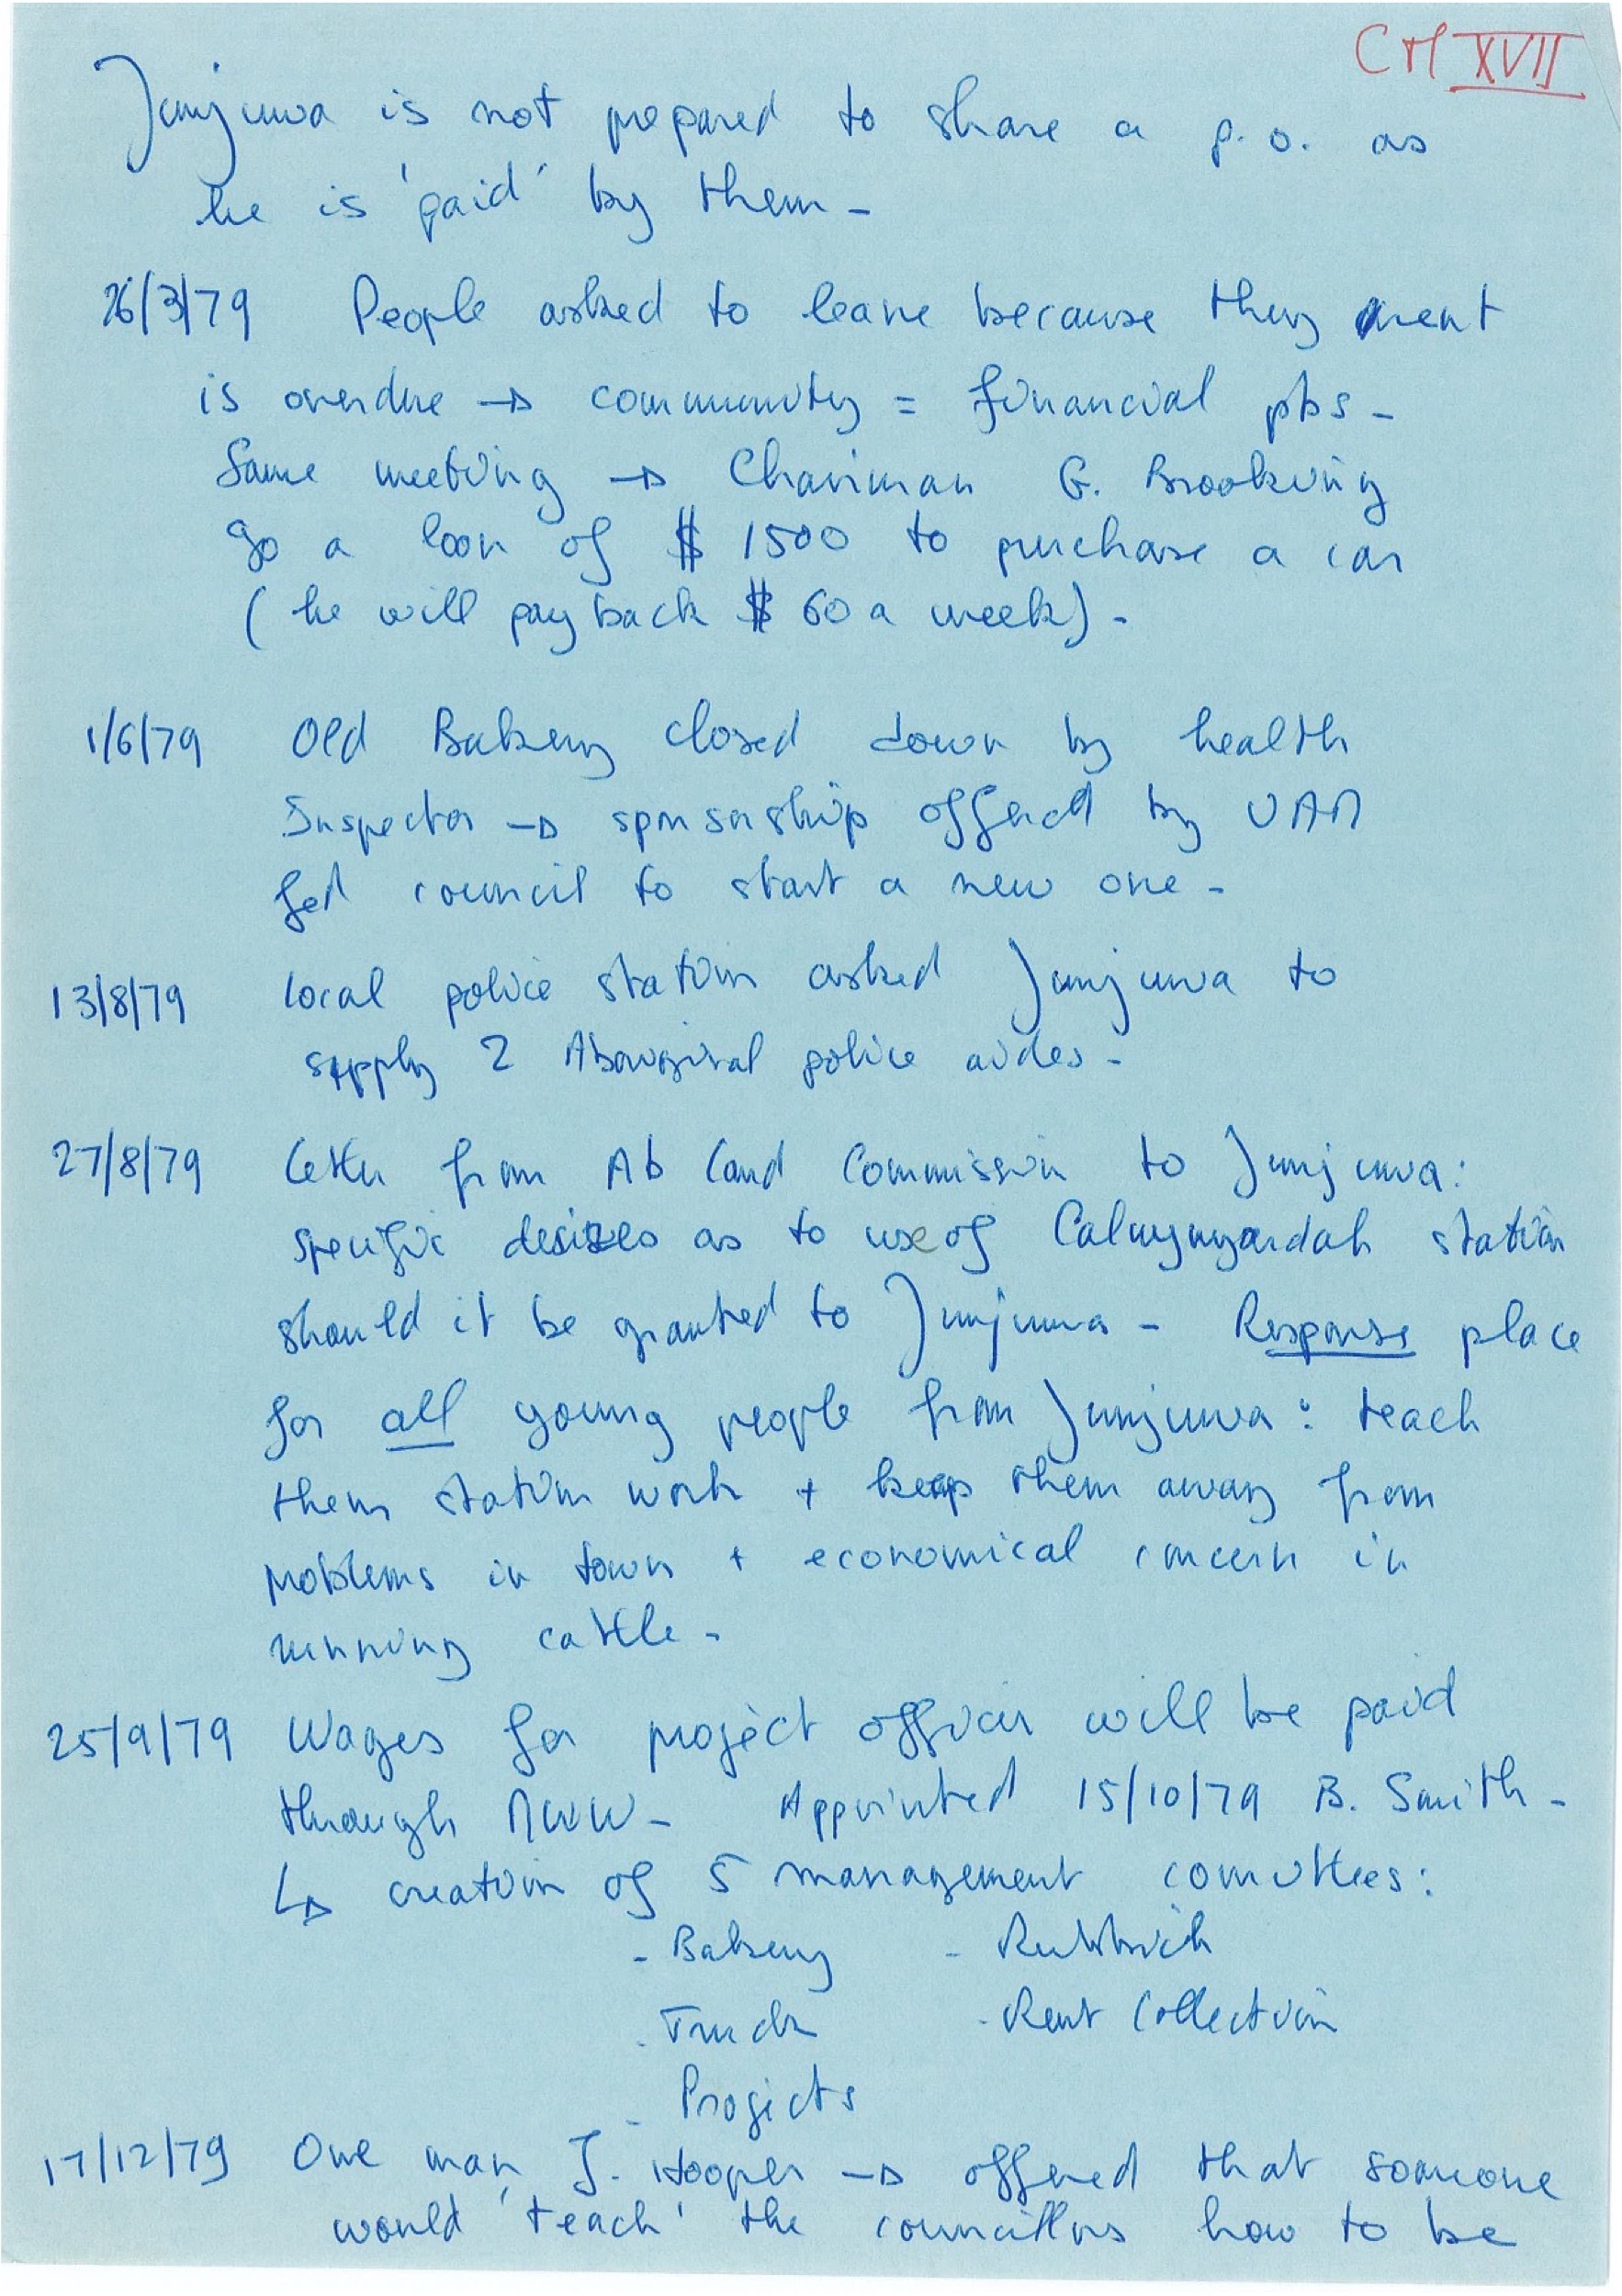 CM XVII
Junjuwa is not prepared to share a p.o. as
he is 'paid' by them -
26/3/79 People asked to leave because they rent
is overdue → community = financial pbs -
Same meeting → Chairman G. Brooking
go a loan of $ 1500 to purchase a car
( he will pay back $ 60 a week) -
1/6/79 Old Bakery closed down by health
Inspector → sponsorship offered by UAM
fed council to start a new one -
13/8/79 Local police station asked Junjuwa to
supply 2 Aboriginal police aides -
27/8/79 Letter from Ab Land Commission to Junjuwa:
specific desires as to use of Calwynyardah station
should it be granted to Junjuwa - Response place
for all young people from Junjuwa : teach
them station work + keep them away from
problems in town + economical concern in
running cattle -
25/9/79 Wages for project officer will be paid
through - Appointed 15/10/79 B. Smith -
↳ creation of 5 management comittees :
- Bakery - Rubbish
- Truck - Rent Collection
- Projects
17/12/79 One man, J. Hooper → offered that someone
would 'teach' the councillors how to be